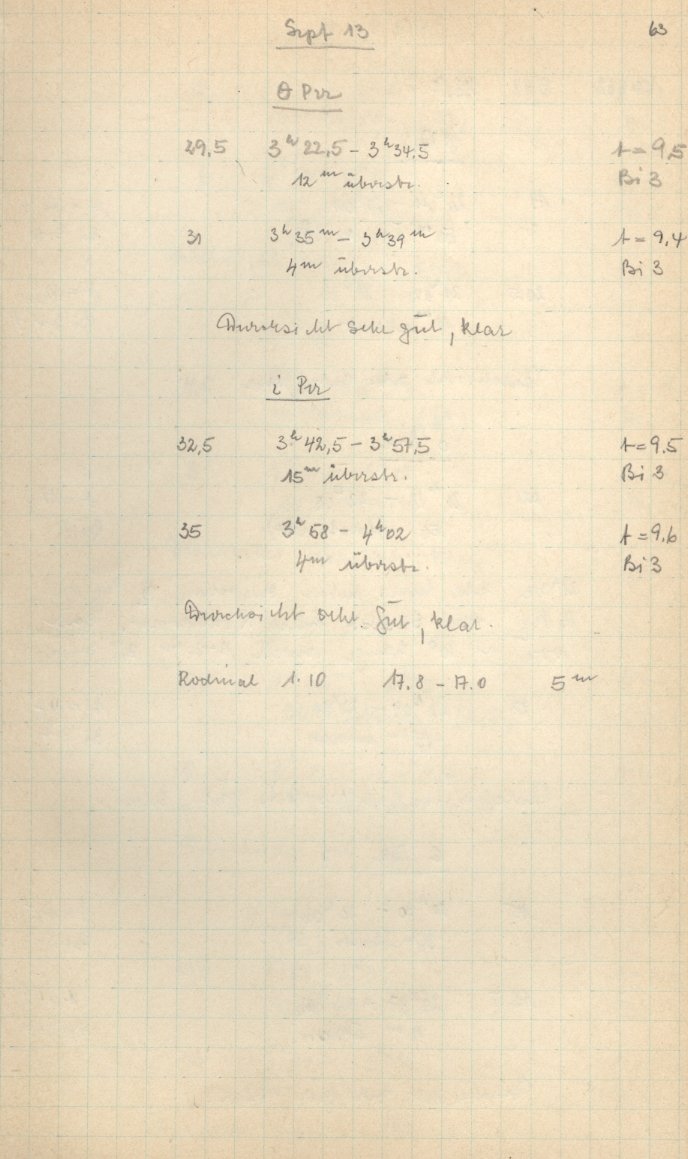 Sept 13 63
θ Per
29,5 3ʰ22,5 – 3ʰ34,5 t = 9,5
12ᵐ überstr. Bi 3
31 3ʰ35ᵐ – 3ʰ39ᵐ t = 9,4
4ᵐ überstr. Bi 3
Durchsicht sehr gut, klar
i Per
32,5 3ʰ42,5 – 3ʰ57,5 t = 9.5
15ᵐ überstr. Bi 3
35 3ʰ58 – 4ʰ02 t = 9.6
4ᵐ überstr. Bi 3
Durchsicht sehr gut, klar.
Rodinal 1.10 17.8 – 17.0 5ᵐ